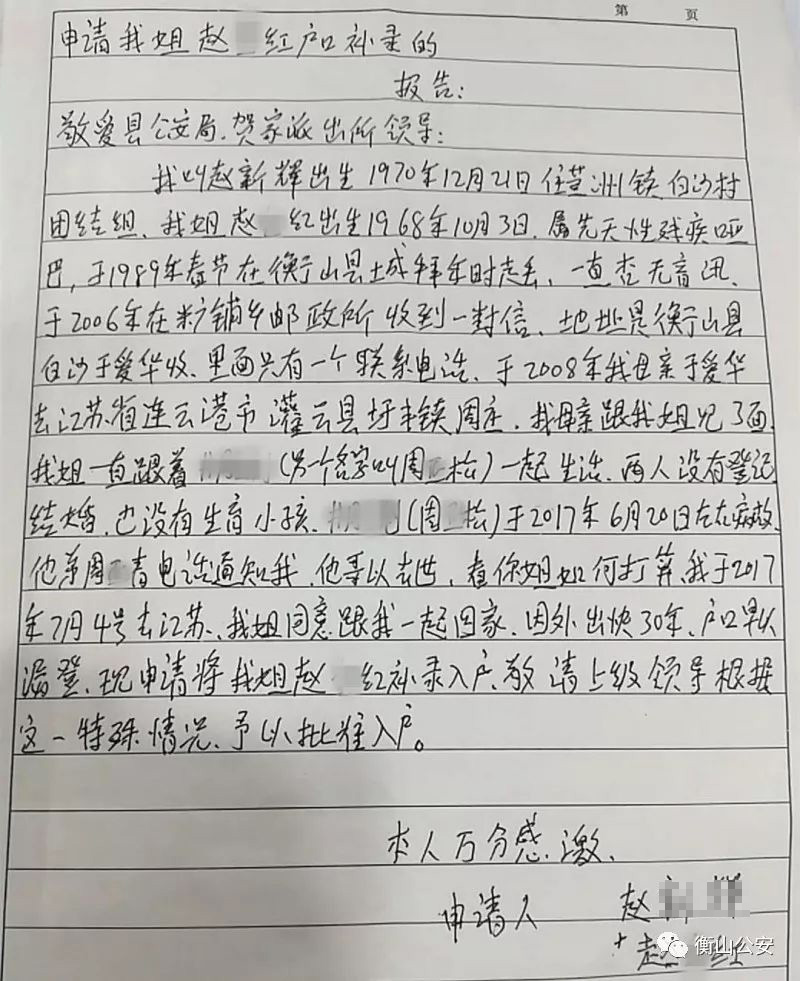 第 页
申请我姐赵 红户口补录的
报告:
敬爱县公安局、贺家派出所领导:
我叫赵新辉出生1970年12月21日住萱洲镇白沙村
团结组、我姐赵 红出生1968年10月3日、属先天性残疾哑
巴,于1989年春节在衡山县城拜年时走丢、一直杳无音讯、
于2006年在 铺乡邮政所收到一封信、地址是衡山县
白沙于爱华收、里面只有一个联系电话、于2008年我母亲于爱华
去江苏省连云港市灌云县圩丰镇周庄、我母亲跟我姐见了面、
我姐一直跟着 (另个名字叫周 松)一起生活、两人没有登记
结婚、也没有生育小孩、 (周 松)于2017年6月20日左右病故、
他弟周 青电话通知我、他哥以去世,看你姐如何打算、我于2017
年7月4号去江苏、我姐同意跟我一起回家、因外出快30年、户口早以
漏登、现申请将我姐赵 红补录入户、敬请上级领导根据
这一特殊情况、予以批准入户。
本人万分感激、
申请人 赵
赵 红
衡山公安